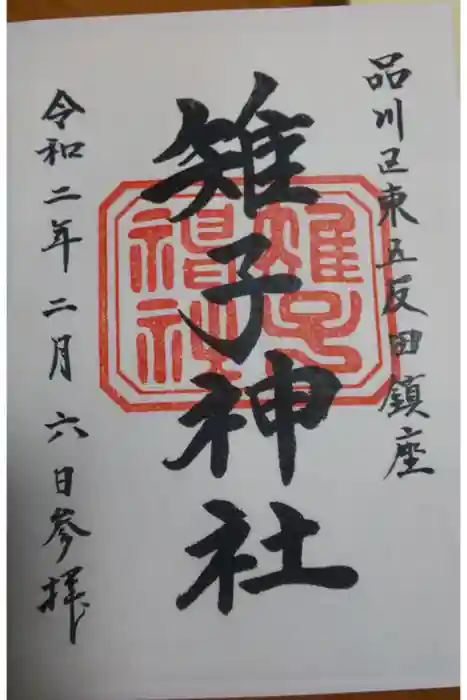 品川区東五反田鎮座
雉子神社
雉子神社
令和二年二月六日参拝